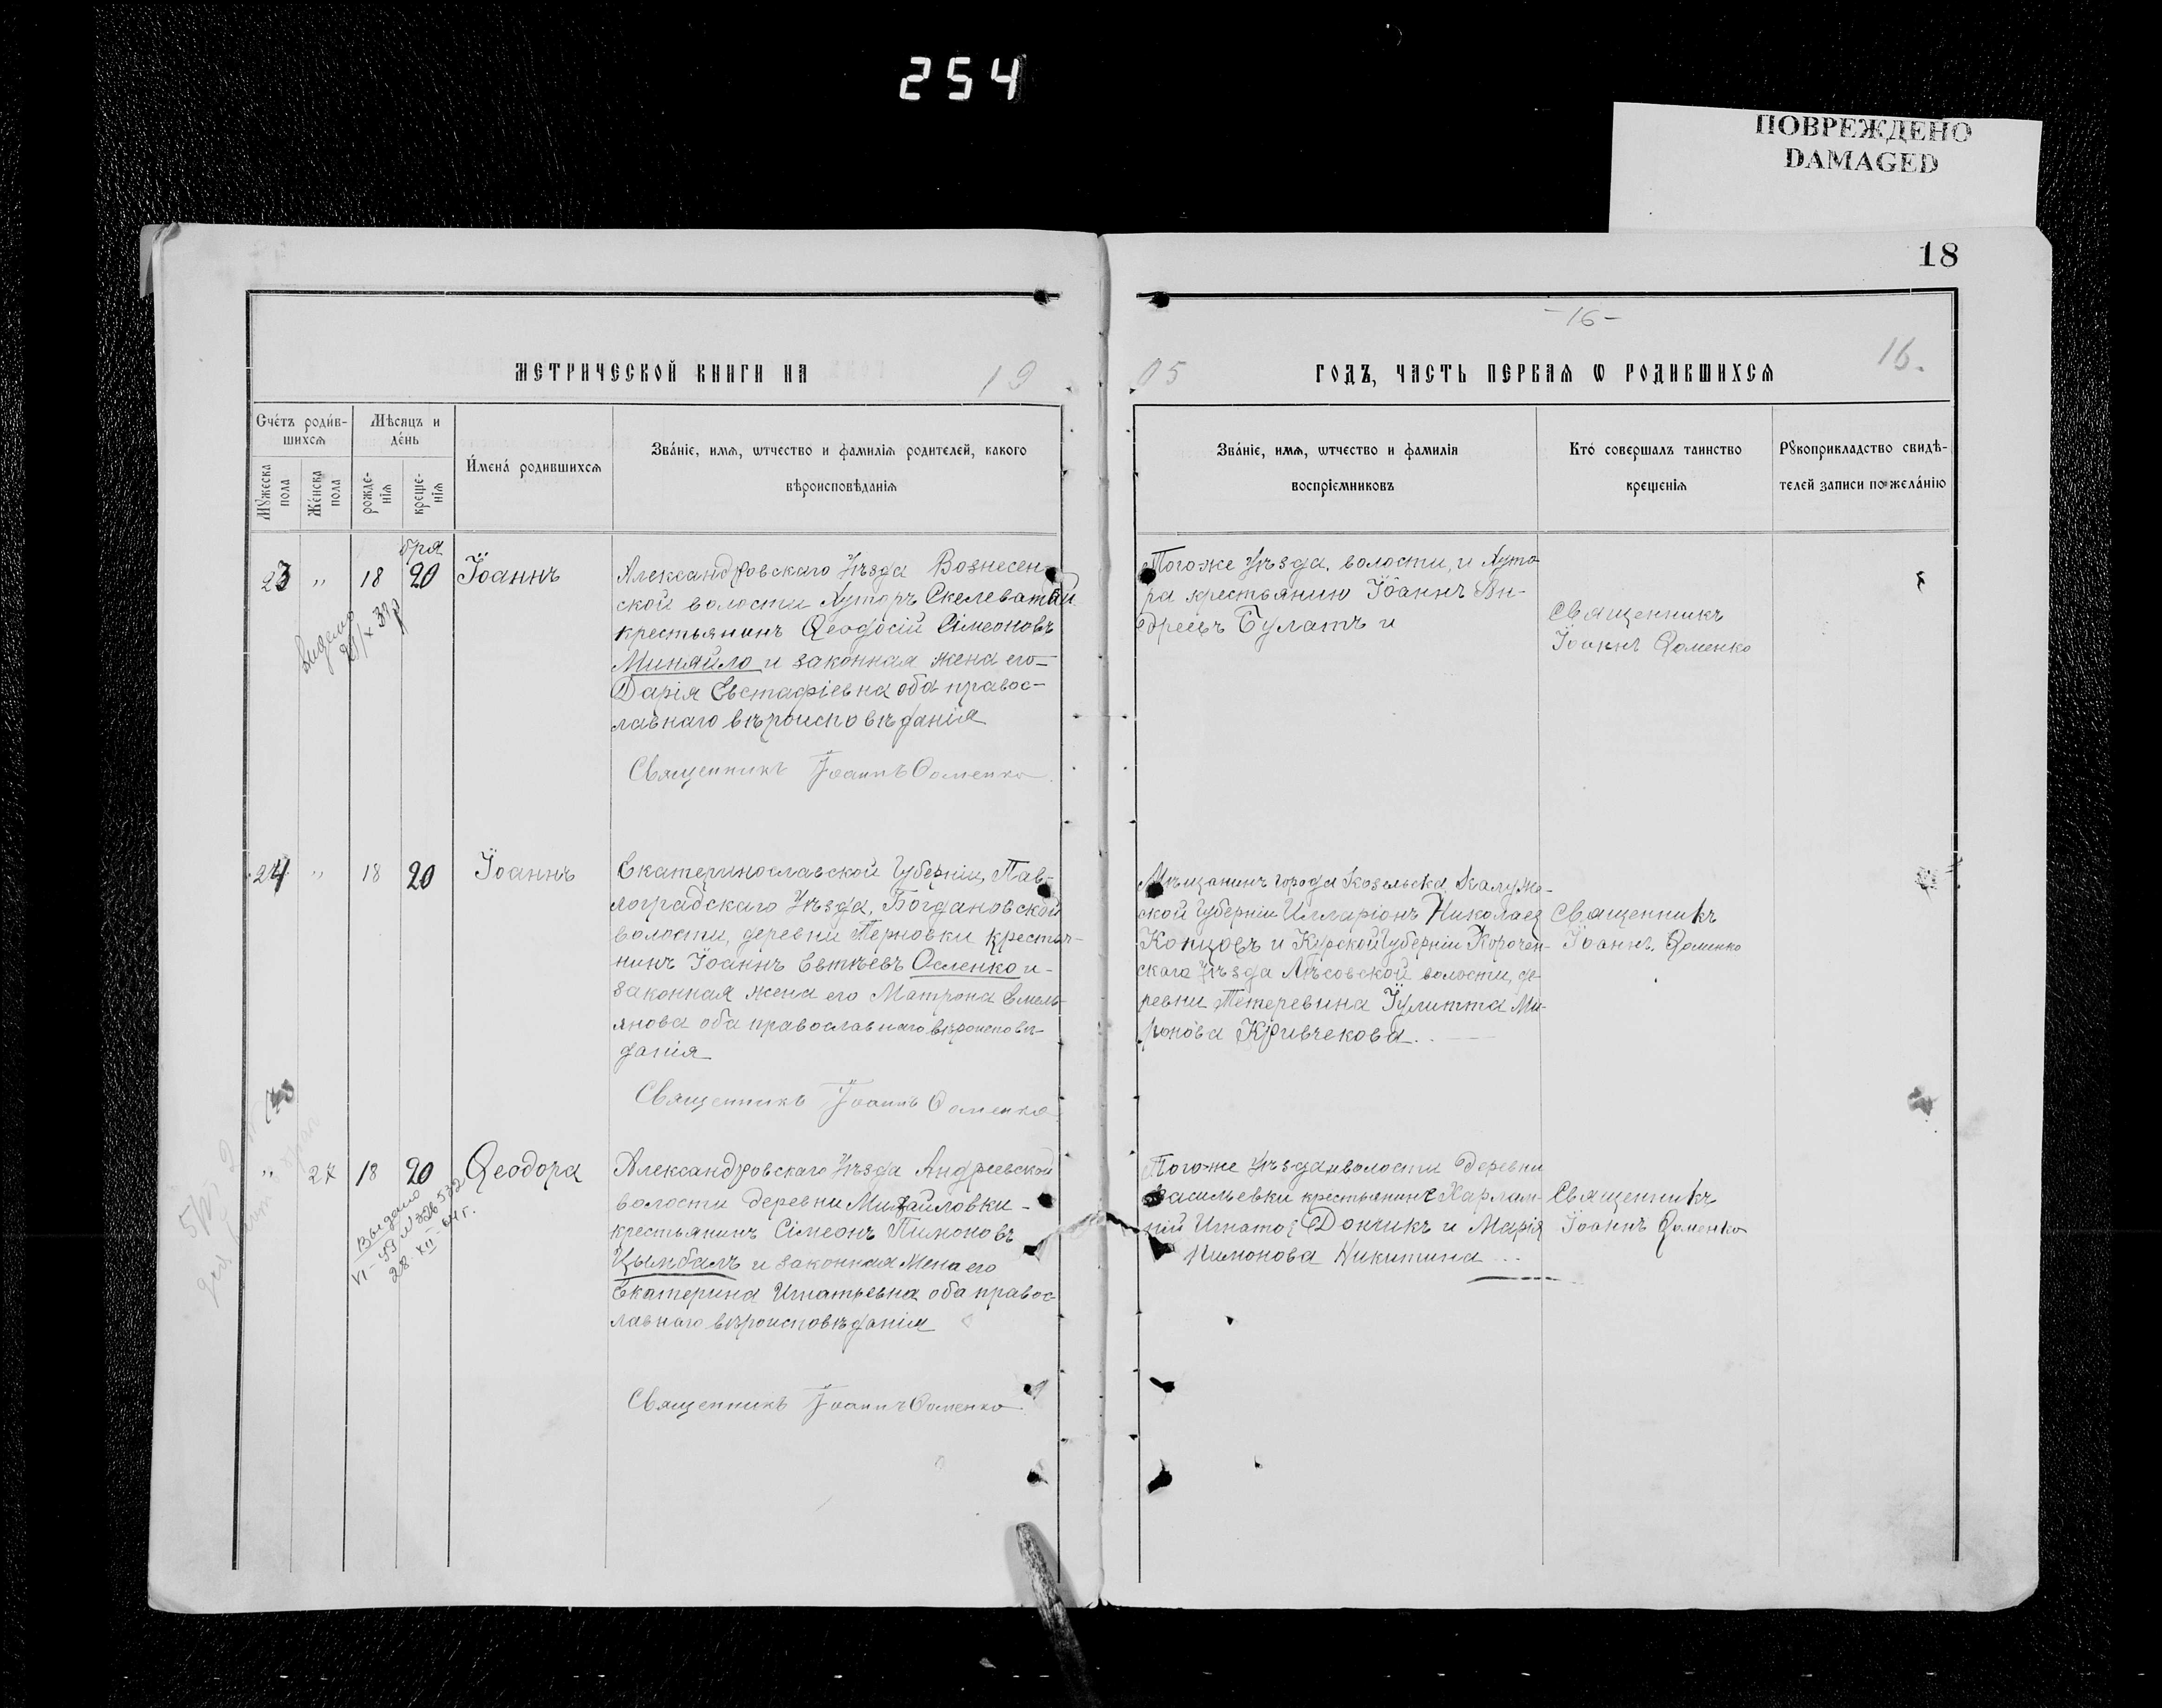 254
ПОВРЕЖДЕНО
DAMAGED
18
-16-
16.
МЕТРИЧЕСКОЙ КНИГИ НА 19
05 ГОДЪ, ЧАСТЬ ПЕРВАѦ Ѡ РОДИВШИХСѦ
Счетъ родив-
шихсѧ
Мѣсяцъ и
день
Мужеска
пола
Женска
пола
рожде-
нія
креще-
нія
Имена родившихсѧ
Званіе, имѧ, ѡтчество и фамиліѧ родителей, какого
вѣроисповѣданіѧ
Званіе, имѧ, ѡтчество и фамиліѧ
воспріемниковъ
Кто совершалъ таинство
крещеніѧ
Рукоприкладство свидѣ-
телей записи по желанію
бря
23 " 18 20 Іоаннъ
Александровскаго Уѣзда Вознесен-
ской волости Хуторъ Скелеватый
крестьянинъ Ѳеодосій Сімеоновъ
Миняйло и законная жена его-
Дарія Евстафіевна оба правос-
лавнаго вѣроисповѣданія
Священникъ Іоаннъ Ѳоменко
Тогоже Уѣзда, волости, и Хуто-
ра крестьянинъ Іоаннъ Ан-
дреевъ Булатъ и
Священникъ
Іоаннъ Ѳоменко
24 " 18 20 Іоаннъ
Екатеринославской Губерніи, Пав-
лоградскаго Уѣзда, Богдановской
волости, деревни Терновки крестья-
нинъ Іоаннъ Евтѣевъ Осленко и-
законная жена его Матрона Емель-
янова оба православнаго вѣроисповѣ-
данія
Священникъ Іоаннъ Ѳоменко
Мѣщанинъ города Козельска Калуж-
ской Губерніи Илларіонъ Николаев
Копцовъ и Курской Губерніи Корочан-
скаго Уѣзда Лѣсовской волости, де-
ревни Тетеревина Іулитта Ми-
ронова Кривчекова..
Священникъ
Іоаннъ Ѳоменко
" 18 20 Ѳеодора
Выдано
28-XII-
Александровскаго Уѣзда Андреевской
волости деревни Михайловки-
крестьянинъ Сімеонъ Пимоновъ
Цымбалъ и законная жена его
Екатерина Игнатьевна оба правос-
лавнаго вѣроисповѣданія
Священникъ Іоаннъ Ѳоменко
Тогоже Уѣзда и волости деревни
Васильевки крестьянинъ Харлам-
пій Игнатов Дончикъ и Марія
Пимонова Никитина...
Священникъ
Іоаннъ Ѳоменко